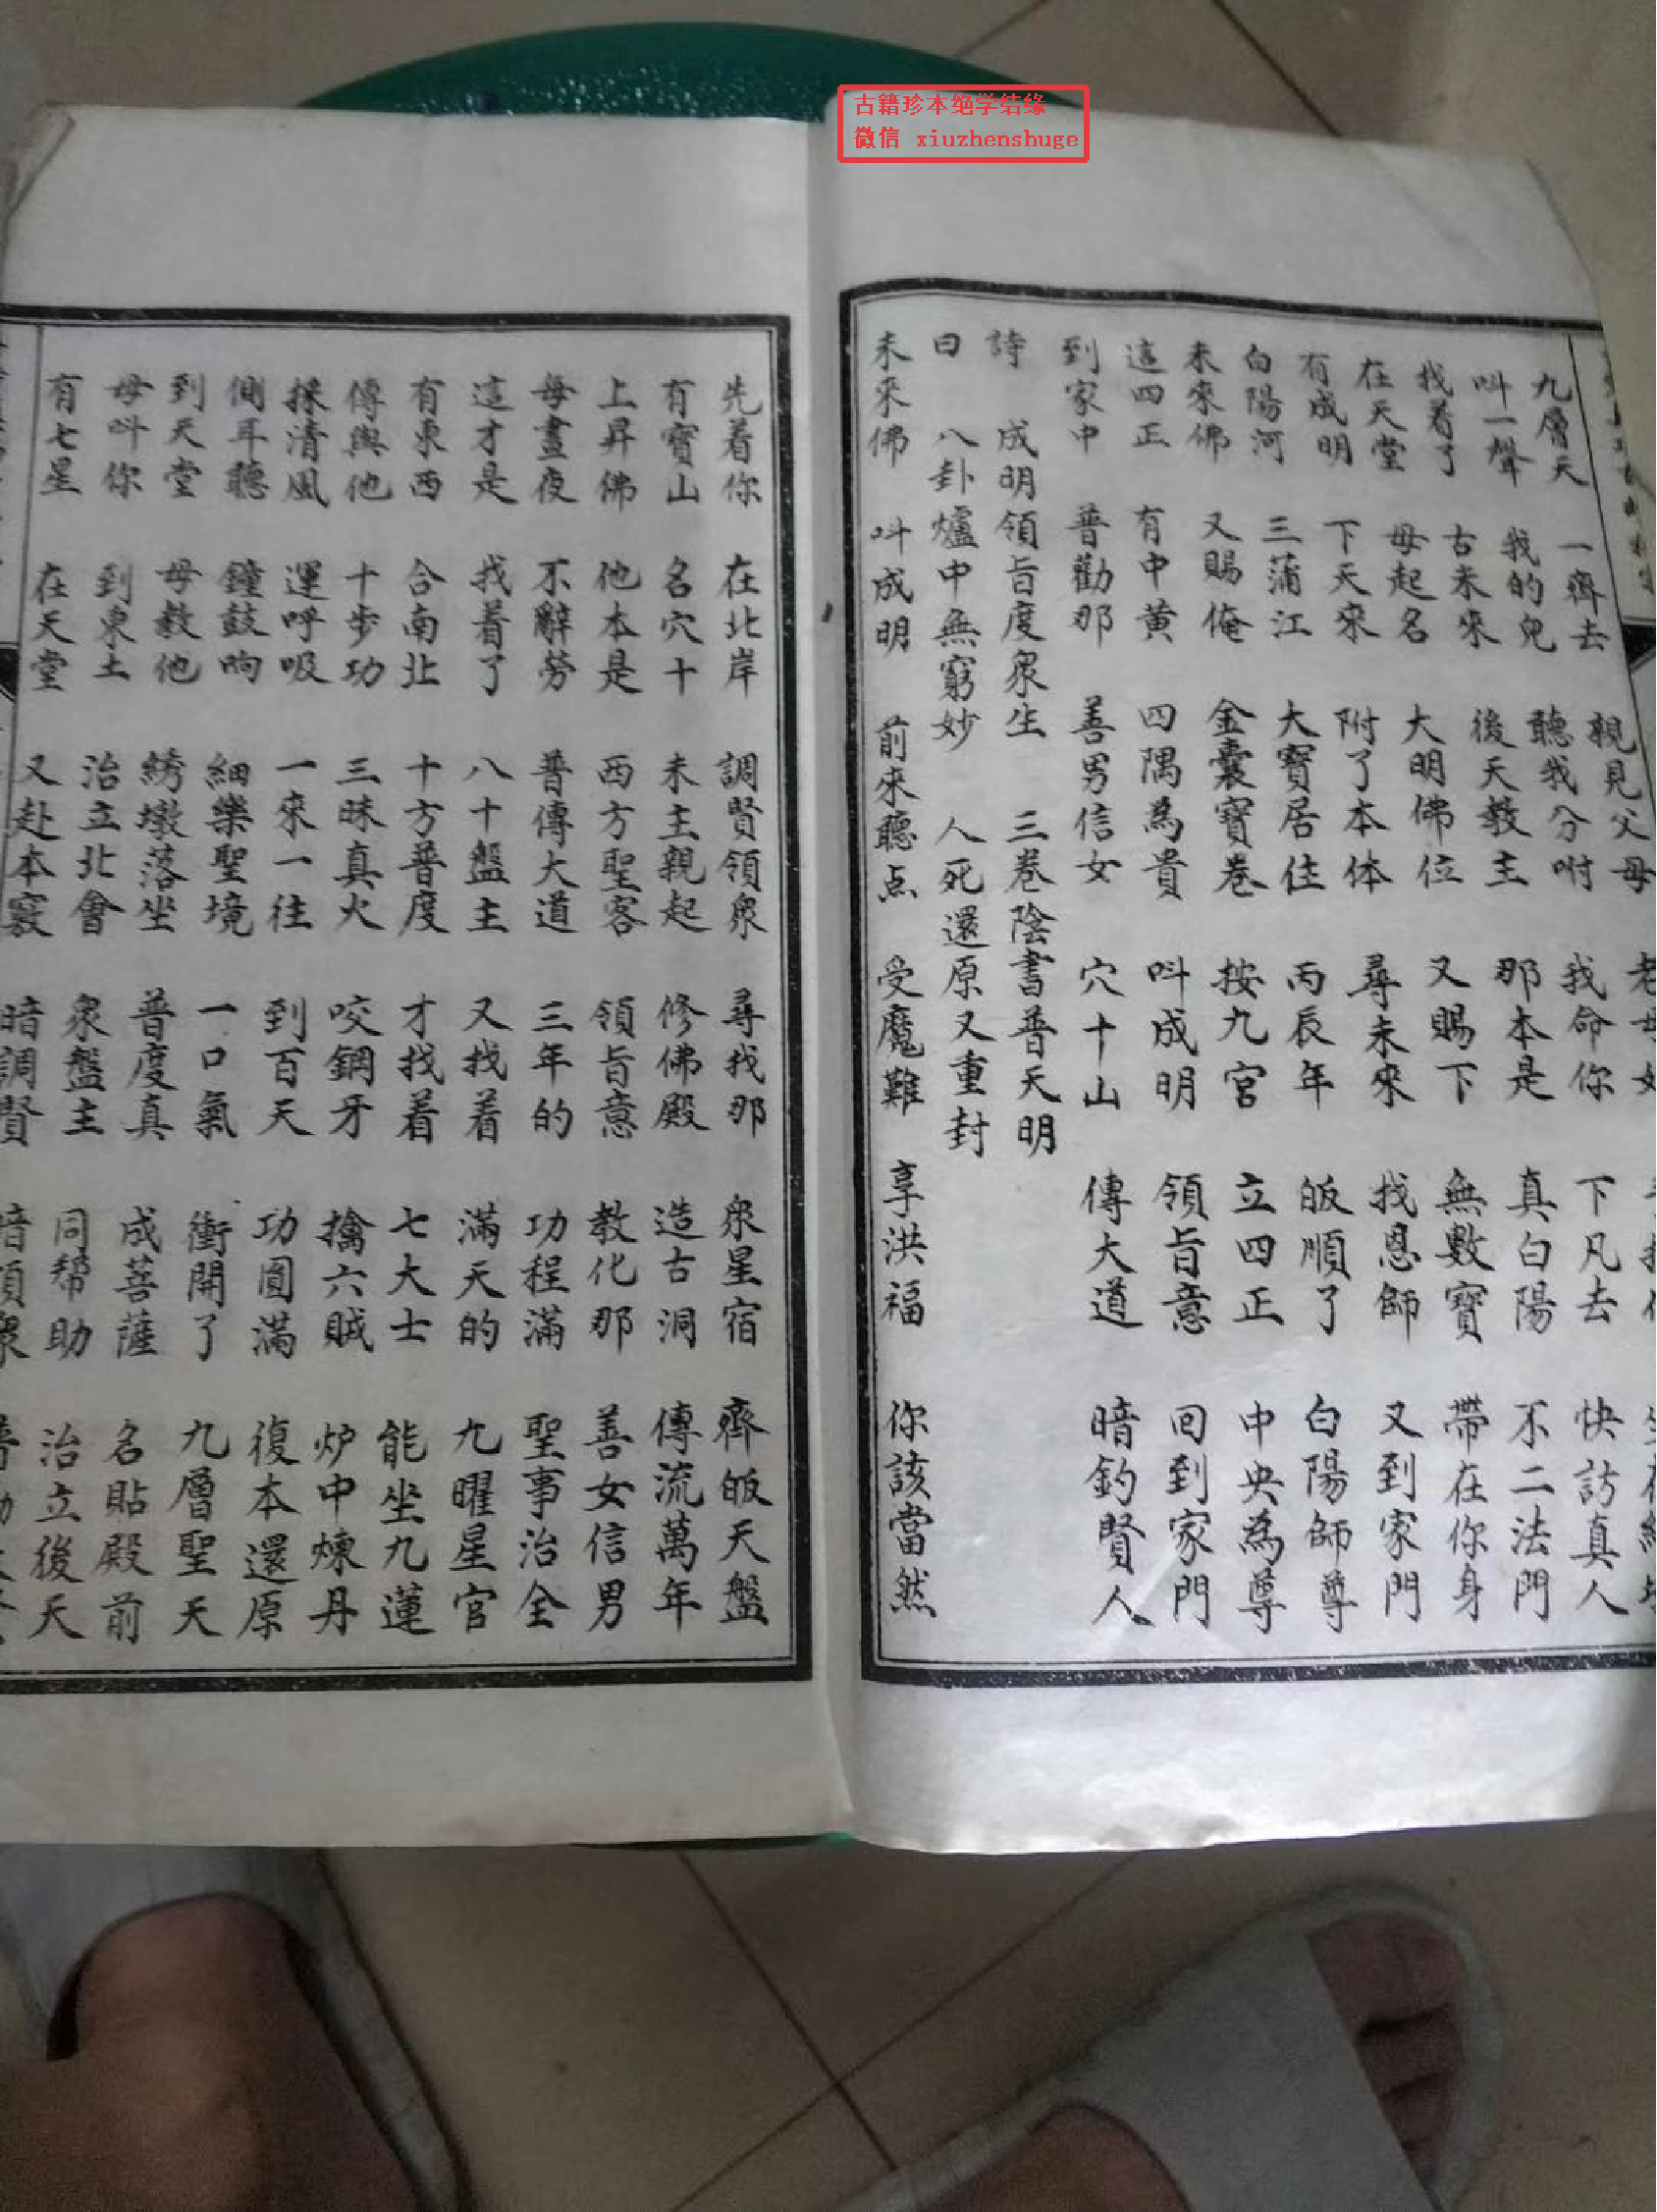 古籍珍本绝学结缘
微信 xiuzhenshuge
九層天 一齊去 親見父母
叫一聲 我的兒 聽我分咐 我命你 下凡去 快訪真人
找着了 古未來 後天教主 那本是 真白陽 不二法門
在天堂 母起名 大明佛位 又賜下 無數寶 帶在你身
有成明 下天來 附了本体 尋未來 找恩師 又到家門
白陽河 三蒲江 大寶居住 丙辰年 皈順了 白陽師尊
未來佛 又賜俺 金囊寶卷 按九宮 立四正 中央為尊
這四正 有中黃 四隅為貴 叫成明 領旨意 回到家門
到家中 普勸那 善男信女 穴十山 傳大道 暗釣賢人
詩 成明領旨度眾生 三卷陰書普天明
曰 八卦爐中無窮妙 人死還原又重封
未來佛 叫成明 前來聽点 受魔難 享洪福 你該當然
先着你 在北岸 調賢領眾 尋我那 眾星宿 齊皈天盤
有寶山 名穴十 未主親起 修佛殿 造古洞 傳流萬年
上昇佛 他本是 西方聖客 領旨意 教化那 善女信男
每晝夜 不辭勞 普傳大道 三年的 功程滿 聖事治全
這才是 找着了 八十盤主 又找着 滿天的 九曜星官
有東西 合南北 十方普度 才找着 七大士 能坐九蓮
傳與他 十步功 三昧真火 咬鋼牙 擒六賊 炉中煉丹
採清風 運呼吸 一來一往 到百天 功圓滿 復本還原
側耳聽 鐘鼓响 細樂聖境 一口氣 衝開了 九層聖天
到天堂 母教他 綉墩落坐 普度真 成菩薩 名貼殿前
母叫你 到東土 治立北會 眾盤主 同幫助 治立後天
有七星 在天堂 又赴本竅 暗調賢 暗領眾